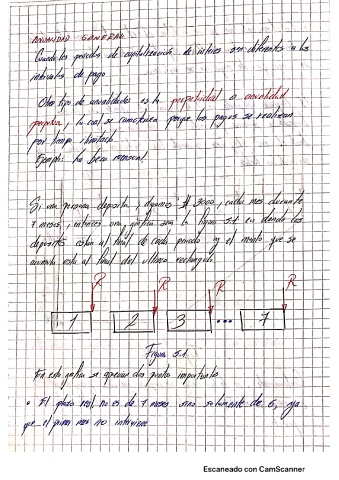 ANUALIDAD GENERAL
Cuando los periodos de capitalización de interes son diferentes a los
intervalos de pago
Otro tipo de anualidades es la perpetuidad o anualidad
perpetua, la cual se caracteriza porque los pagos se realizan
por tiempo ilimitado
Ejemplo: la beca mensual
Si una persona deposita, digamos $ 3000, cada mes durante
7 meses, entonces una gráfica sera la figura 5.1 en donde los
depositos estan al final de cada periodo y el monto que se
acumula está al final del ultimo rectangulo
R R R R
1 2 3 ... 7
Figura 5.1
En esta gráfica se aprecian dos puntos importantes
• El plazo real no es de 7 meses sino solamente de 6, ya
que el primer mes no interviene
Escaneado con CamScanner